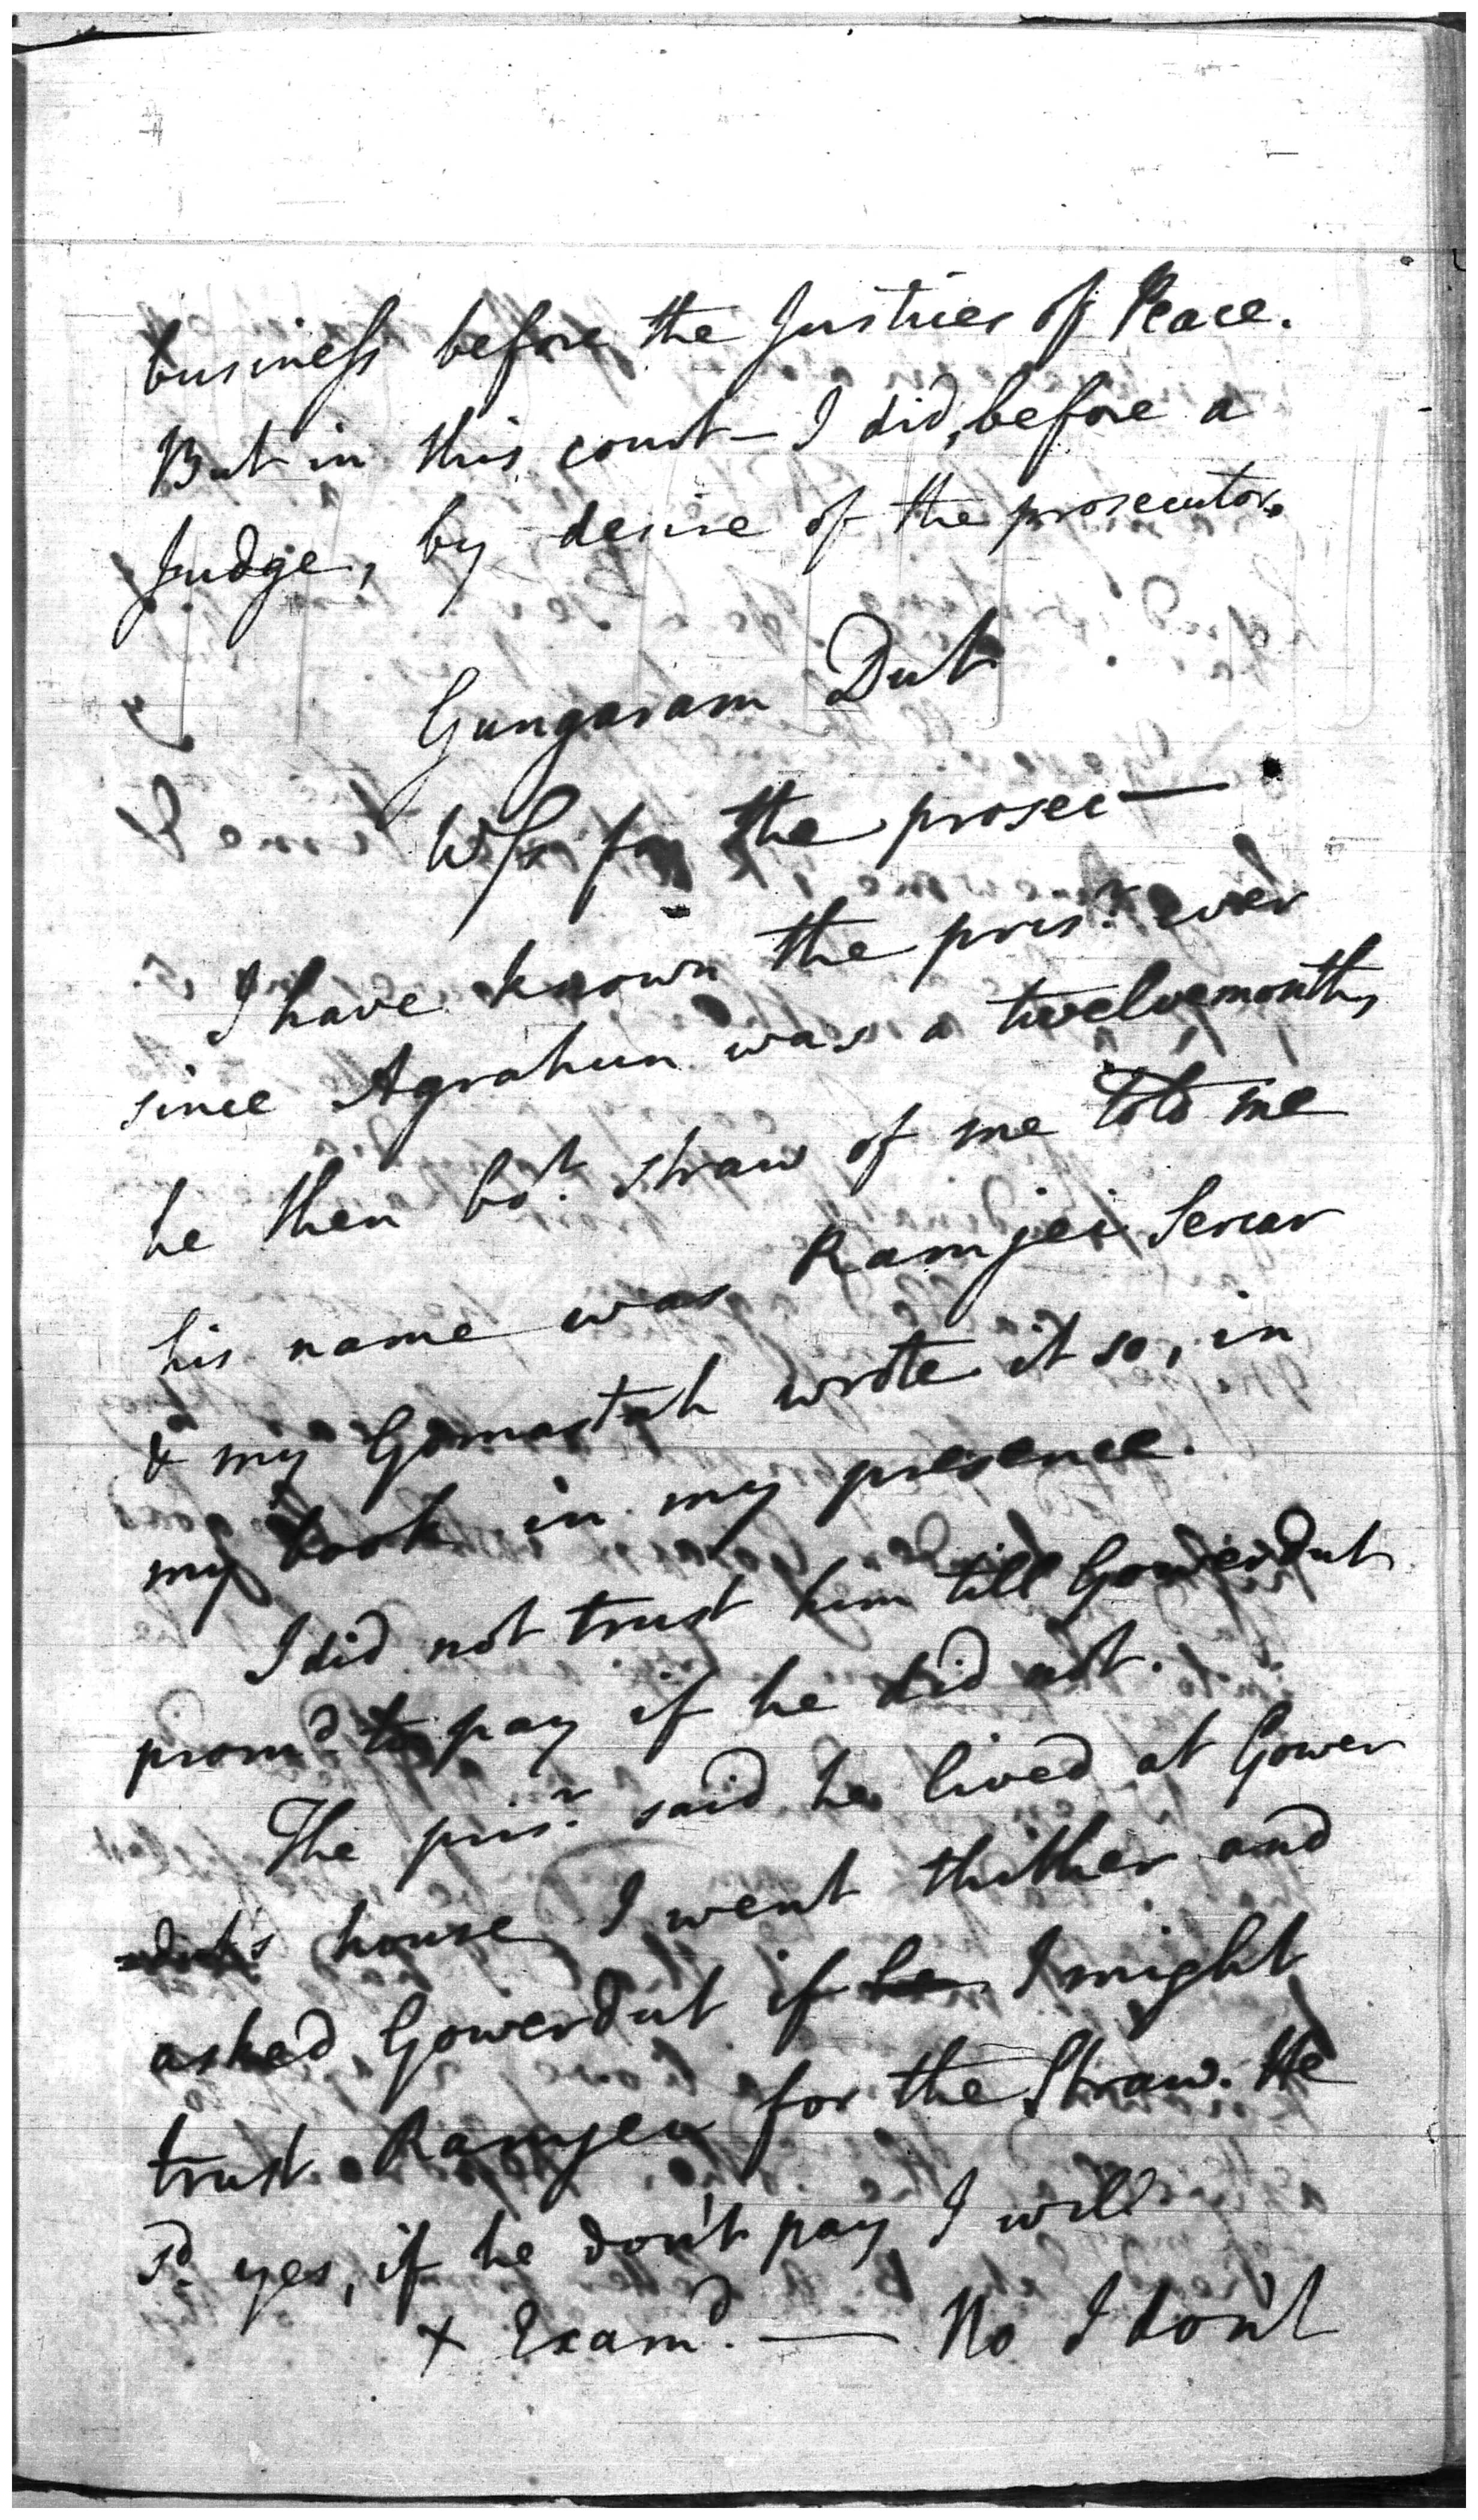 business before the Justices of Peace.
But in this court – I did, before a
Judge, by desire of the prosecutor.
Gungaram Dut
Wss for the prosec—
I have known the prisr. ever
since Agrahun was a twelvemonth,
he then bot. straw of me told me
his name was Ramjei Sercar
& my Gomastah wrote it so, in
my book in my presence.
I did not trust him till Gowerdut
promd. to pay if he did not.
The prisr. said he lived at Gower
dut's house, I went thither and
asked Gowerdut if he I might
trust Ramjei for the Straw. He
sd. yes, if he don't pay I will
x Examd. — No I don't